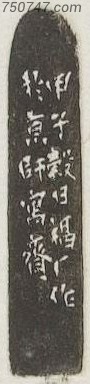 750747.com
甲子穀日福厂作
於京師寓齋